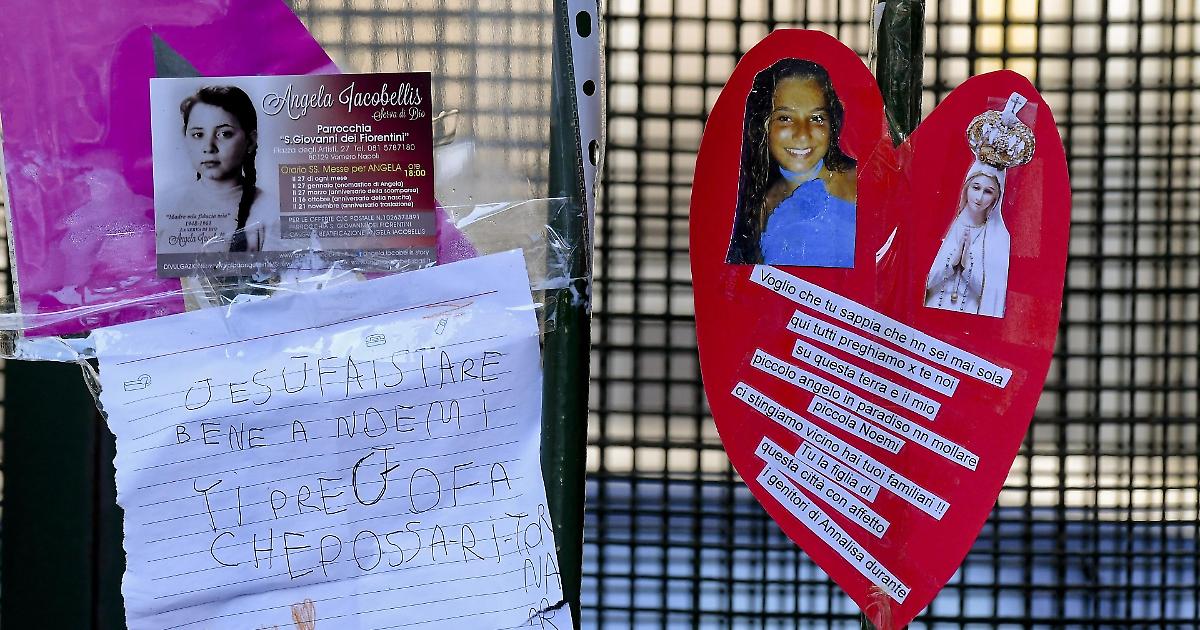 Angela Iacobellis
Serva di Dio
Parrocchia
"S.Giovanni dei Fiorentini"
Piazza degli Artisti, 27 Tel. 081 5787180
80129 Vomero Napoli
Orario SS. Messe per ANGELA ore 18:00
il 27 di ogni mese
il 27 gennaio (onomastico di Angela)
il 27 marzo (anniversario della scomparsa)
il 16 ottobre (anniversario della nascita)
il 21 novembre (anniversario traslazione)
PER LE OFFERTE C/C POSTALE N.1026378891
PARROCCHIA S. GIOVANNI DEI FIORENTINI
CAUSA BEATIFICAZIONE ANGELA IACOBELLIS
"Madre mia fiducia mia"
1948-1961
LA SERVA DI DIO
JESÚFAISTARE
BENE A NOEMI
TI PREGOFA
CHEPOSSA-RI-TOR
NA
AR
Voglio che tu sappia che nn sei mai sola
qui tutti preghiamo x te noi
su questa terra e il mio
piccolo angelo in paradiso nn mollare
piccola Noemi
ci stingiamo vicino hai tuoi familiari !!
Tu la figlia di
questa città con affetto
I genitori di Annalisa durante